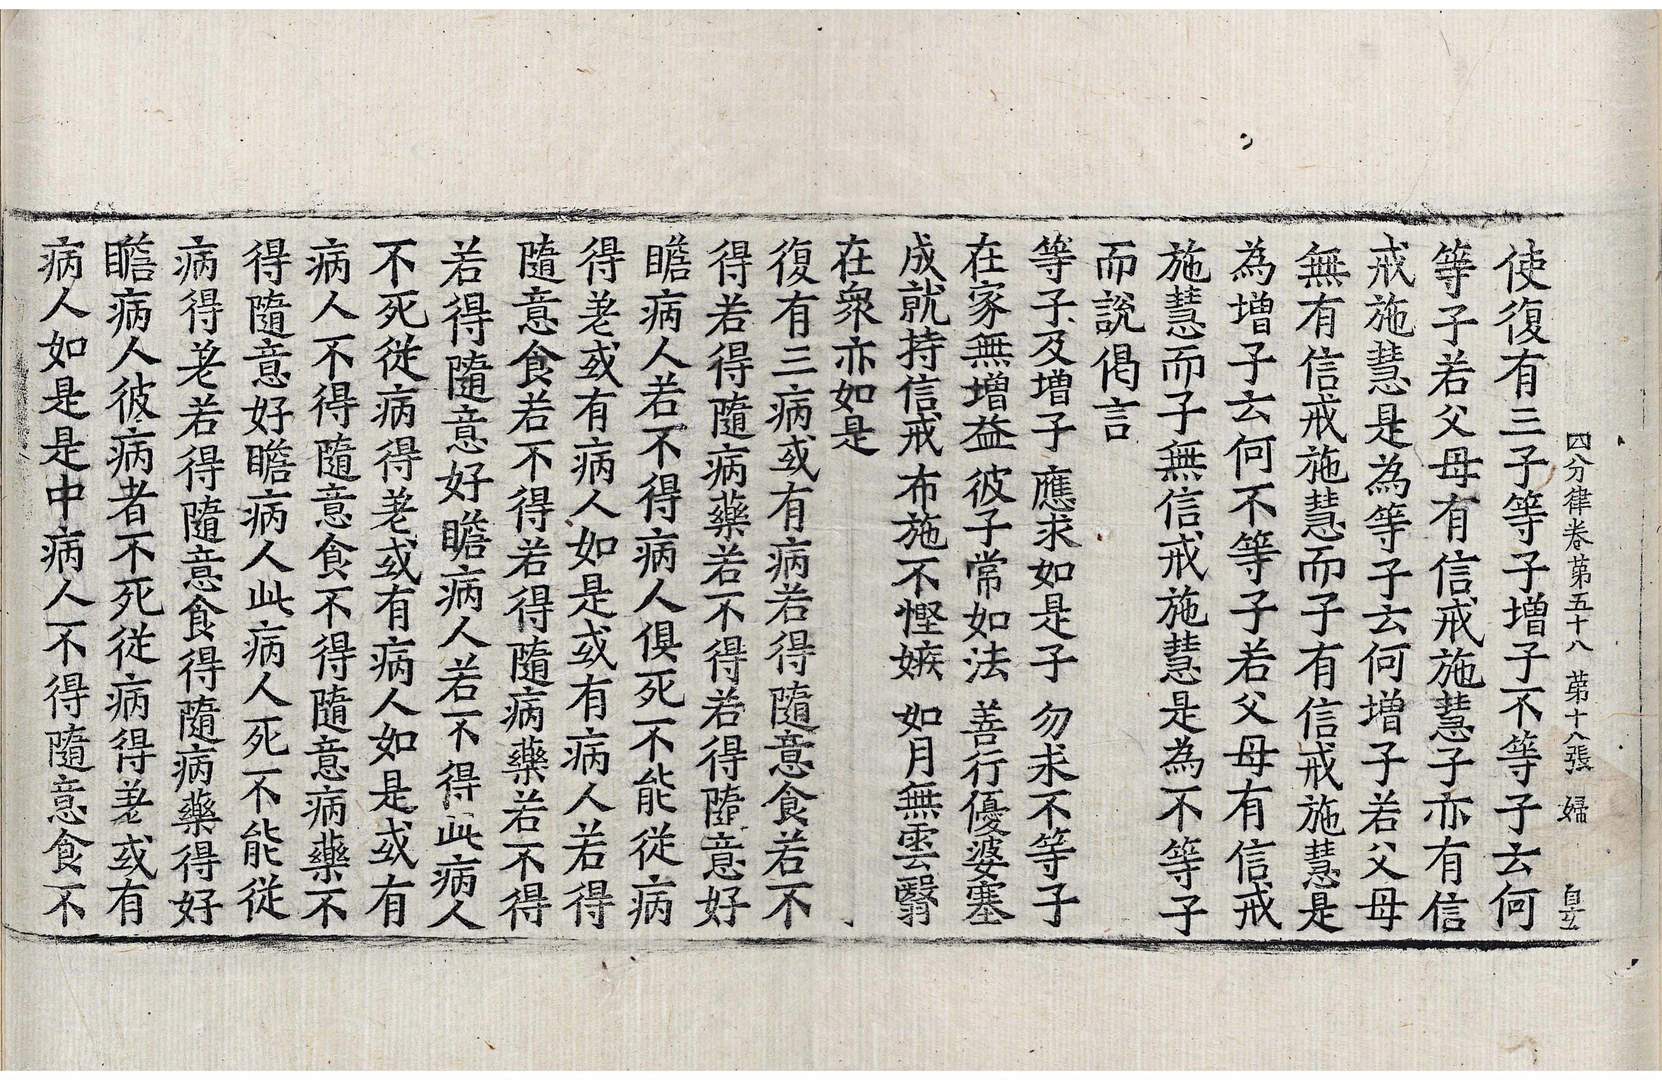 四分律卷第五十八 第十八張 婦
使復有三子等子增子不等子云何
等子若父母有信戒施慧子亦有信
戒施慧是為等子云何增子若父母
無有信戒施慧而子有信戒施慧是
為增子云何不等子若父母有信戒
施慧而子無信戒施慧是為不等子
而說偈言
等子及增子 應求如是子 勿求不等子
在家無增益 彼子常如法 善行優婆塞
成就持信戒 布施不慳嫉 如月無雲翳
在衆亦如是
復有三病或有病若得隨意食若不
得若得隨病藥若不得若得隨意好
瞻病人若不得病人俱死不能從病
得差或有病人如是或有病人若得
隨意食若不得若得隨病藥若不得
若得隨意好瞻病人若不得此病人
不死從病得差或有病人如是或有
病人不得隨意食不得隨意病藥不
得隨意好瞻病人此病人死不能從
病得差若得隨意食得隨病藥得好
瞻病人彼病者不死從病得差或有
病人如是是中病人不得隨意食不